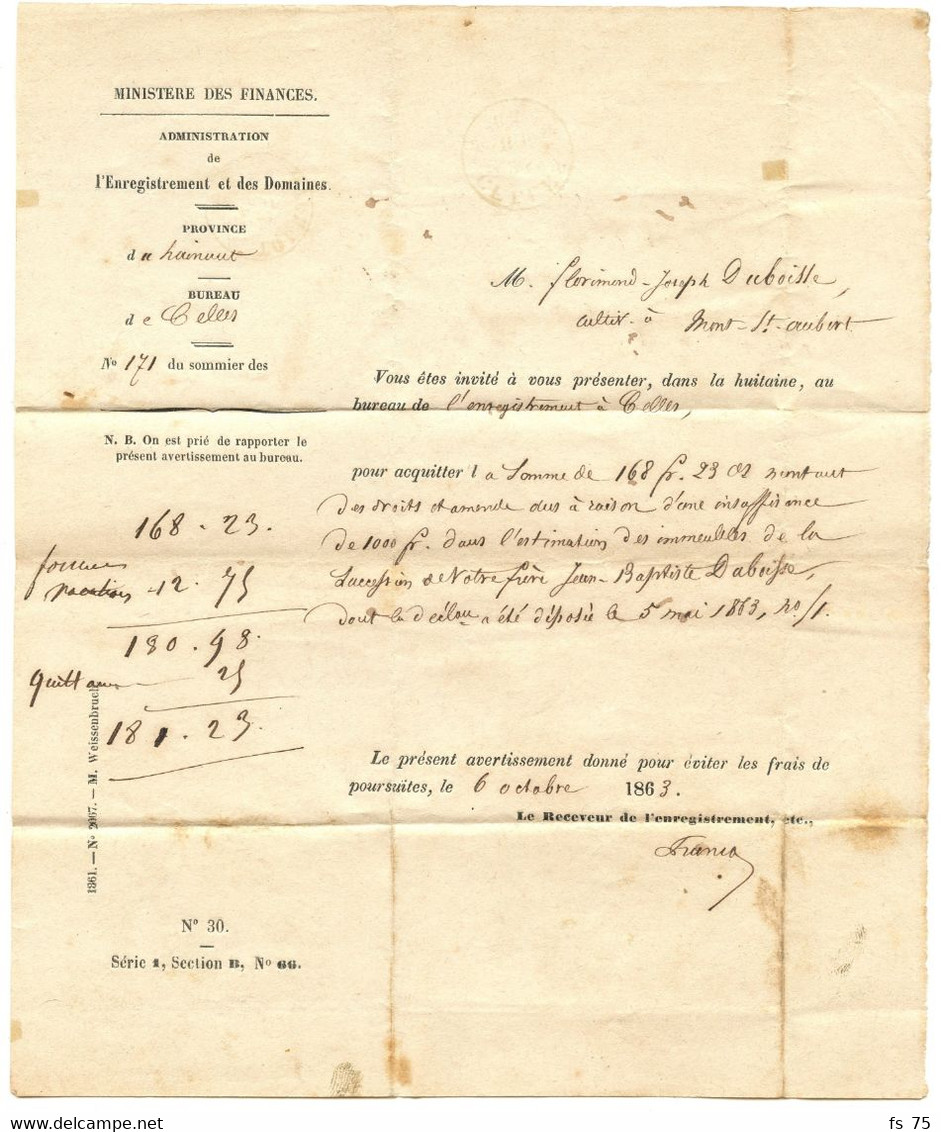 MINISTERE DES FINANCES.
ADMINISTRATION
de
l'Enregistrement et des Domaines.
PROVINCE
du hainaut
BUREAU
de Celles
No 171 du sommier des
N. B. On est prié de rapporter le
présent avertissement au bureau.
168 . 23.
12 . 75
180 . 98.
quittance 25
181 . 23.
1861. — No 2067. — M. Weissenbruch
No 30.
Série 1, Section B, No 66.
M. florimond-Joseph Duboisse,
cultiv. à Mont-St-aubert
Vous êtes invité à vous présenter, dans la huitaine, au
bureau de l'enregistrement à Celles,
pour acquitter la Somme de 168 fr. 23 montant
des droits et amende dus à raison d'une insuffisance
de 1000 fr. dans l'estimation des immeubles de la
Succession de Votre frère Jean-Baptiste Duboisse,
dont la déclon a été déposée le 5 mai 1863, no 1.
Le présent avertissement donné pour éviter les frais de
poursuites, le 6 octobre 1863.
Le Receveur de l'enregistrement, etc.,
fs 75